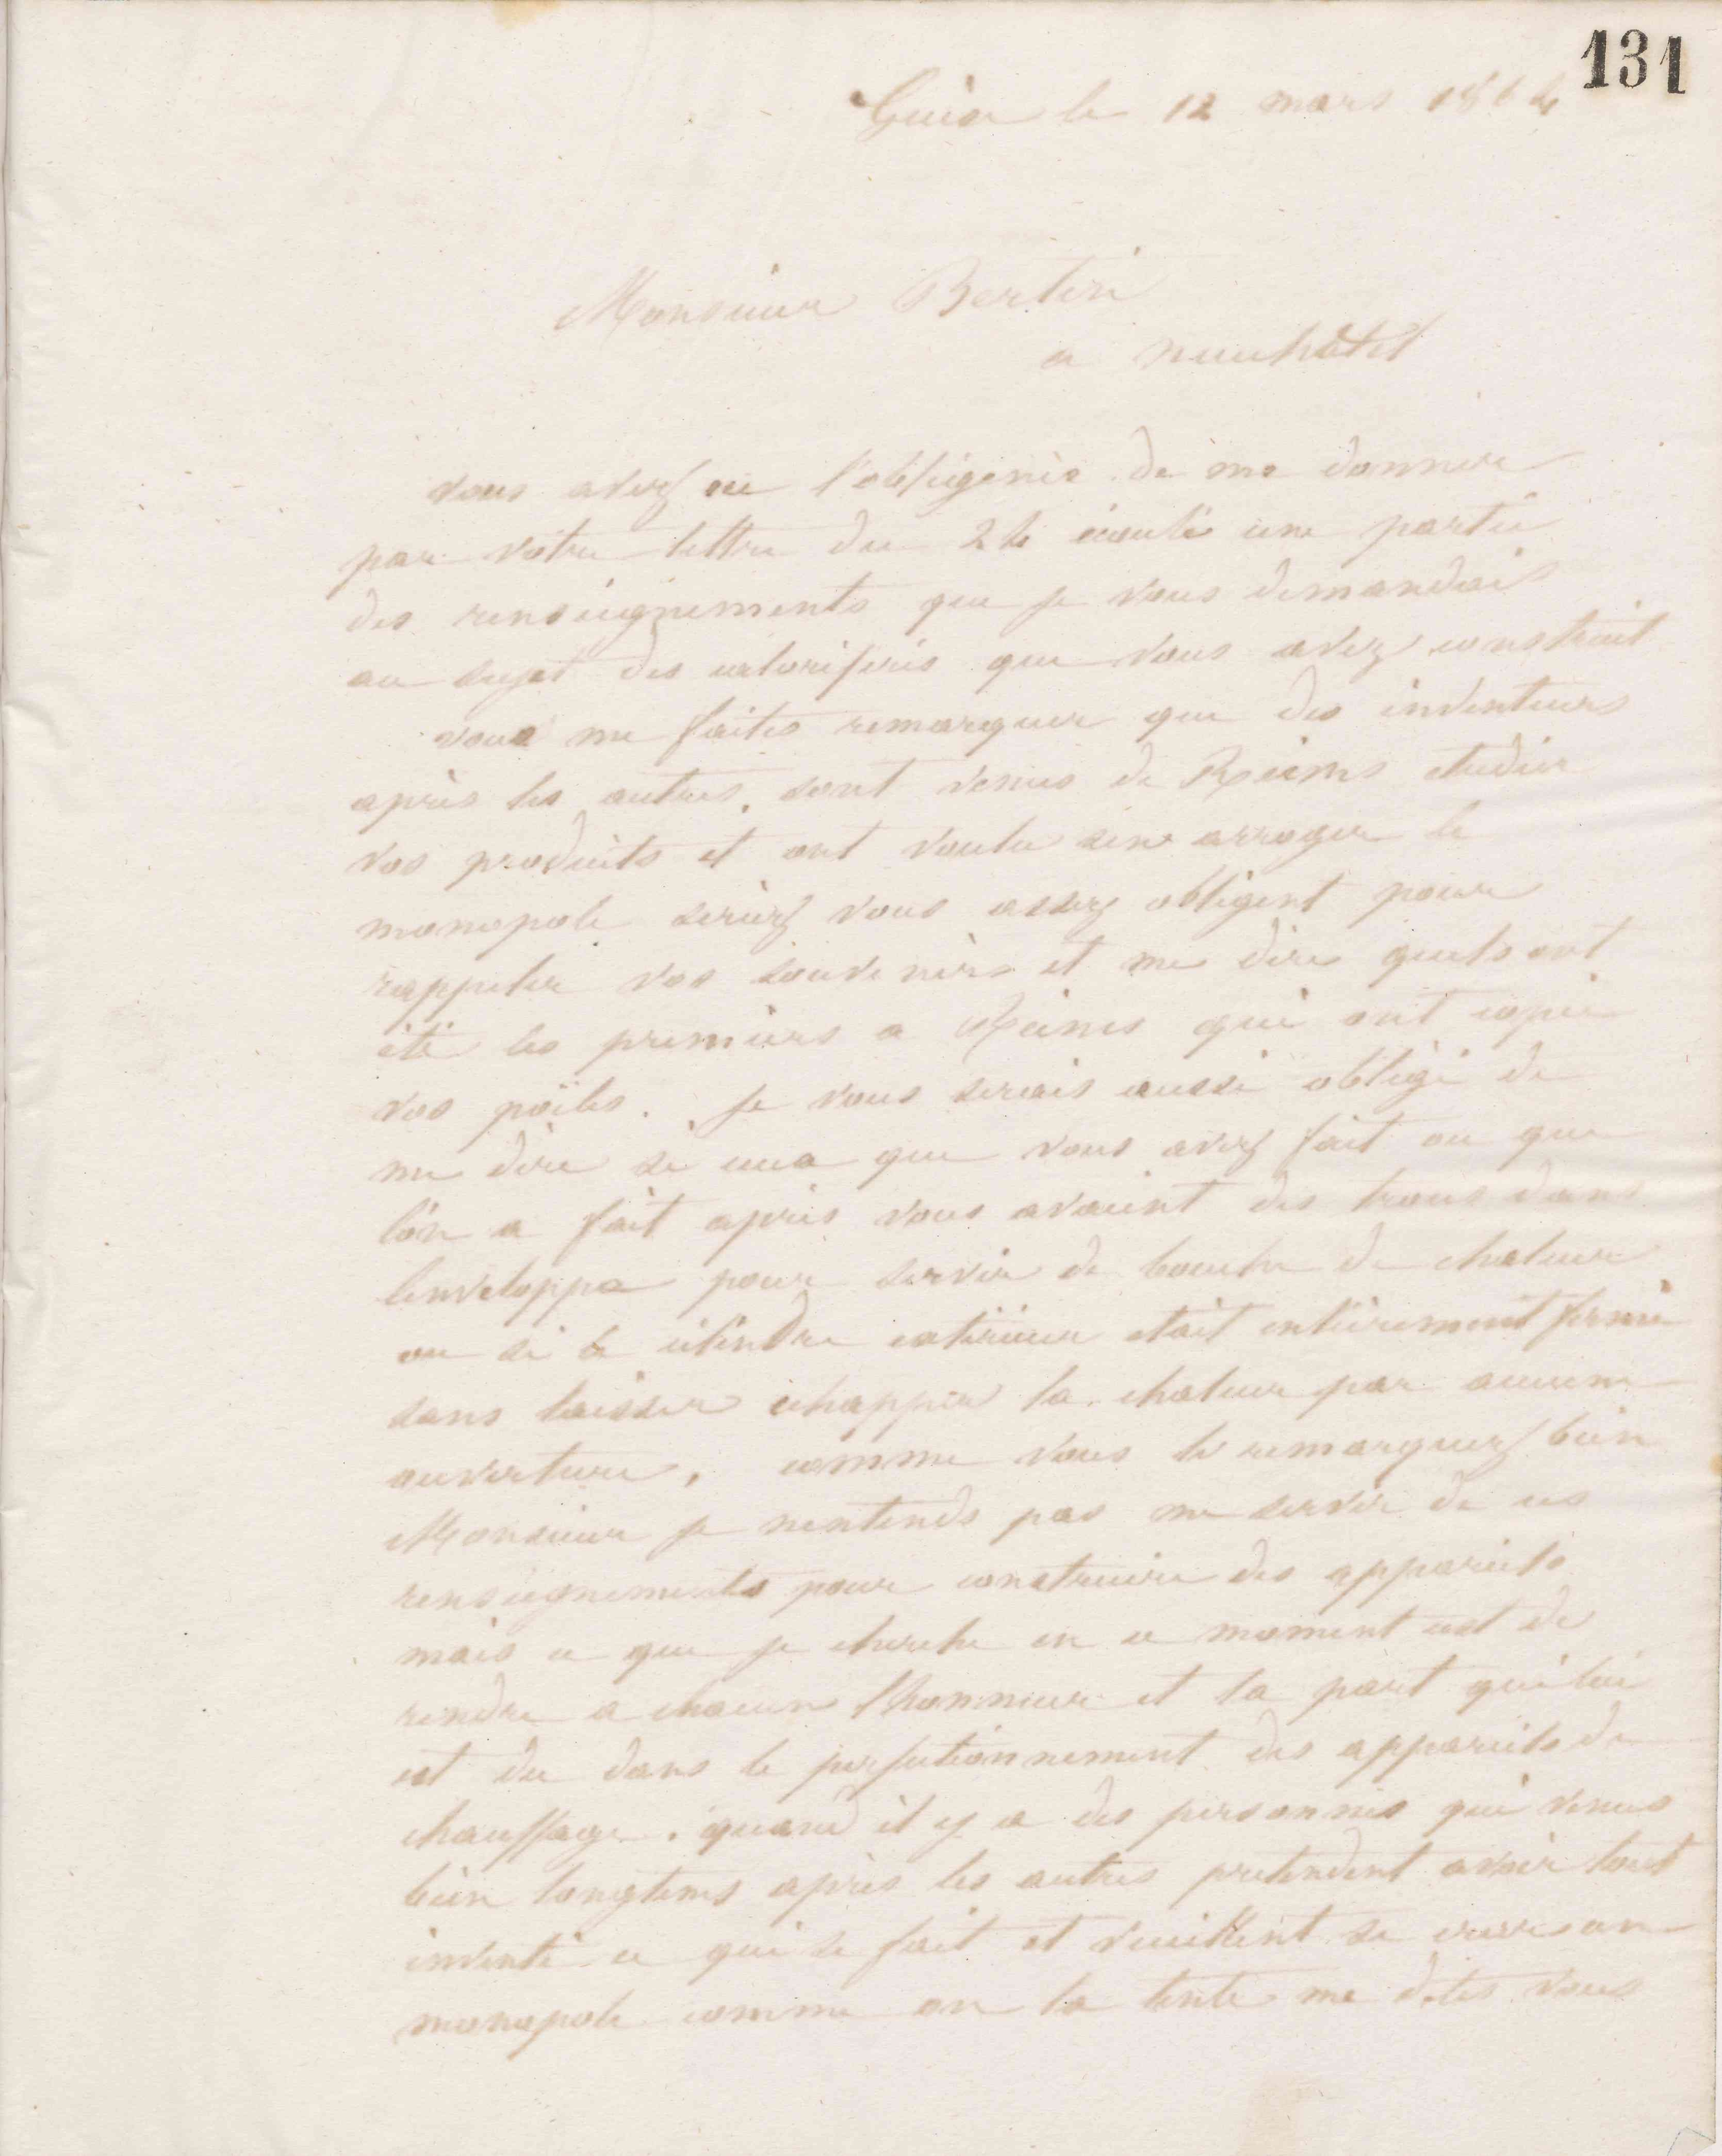 131
Guise le 12 mars 1864
Monsieur Bertin
a neuchâtel
vous avez eu l'obligence de me donner
par votre lettre du 24 écoulé une partie
des renseignements que je vous demandais
au sujet des calorifères que vous avez construit
vous me faites remarquer que des inventeurs
après les autres, sont venus de Reims etudier
vos produits et ont voulu s'en arroger le
monopole seriez vous assez obligent pour
rappeler vos souvenirs et me dire quels ont
été les premiers a Reims qui ont copié
vos poëles. Je vous serais aussi obligé de
me dire si ceux que vous avez fait ou que
l'on a fait après vous avaient des trous dans
lenveloppe pour servir de bouche de chaleur
ou si le cilindre extérieur était entièrement fermé
sans laisser echapper la chaleur par aucune
ouverture, comme vous le remarquez bien
Monsieur je nentends pas me servir de ces
renseignements pour construire des appareils
mais ce que je cherche en ce moment cest de
rendre a chacun l'honneur et la part qui lui
est du dans le perfectionnement des appareils de
chauffage. quand il y a des personnes qui venus
bien longtems après les autres pretendent avoir tout
inventé ce qui se fait et veuillent se creer un
monopole comme on la tenté me dites vous